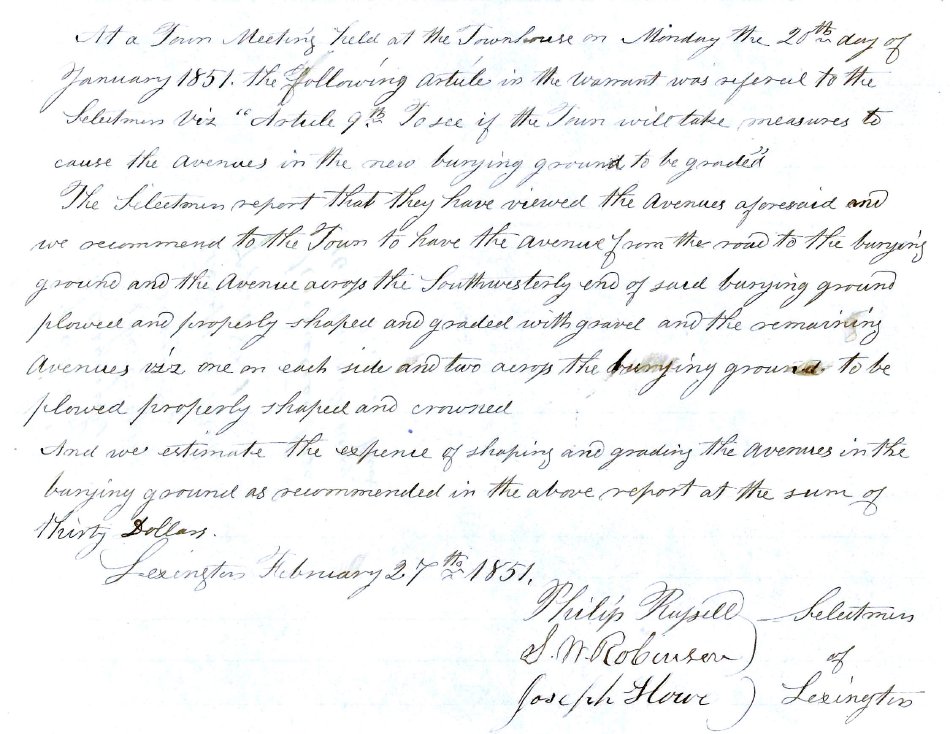 At a Town Meeting held at the Townhouse on Monday the 20th day of
January 1851. the following Article in the warrant was refered to the
Selectmen Viz "Article 9th To see if the Town will take measures to
cause the Avenues in the new burying ground to be graded"
The Selectmen report that they have viewed the Avenues aforesaid and
we recommend to the Town to have the Avenue from the road to the burying
ground and the Avenue across the Southwesterly end of said burying ground
plowed and properly shaped and graded with gravel and the remaining
Avenues viz one on each side and two across the burying ground to be
plowed properly shaped and crowned
And we estimate the expence of shaping and grading the Avenues in the
burying ground as recommended in the above report at the sum of
thirty Dollars.
Lexington February 27th 1851.
Philip Russell Selectmen
S. W. Robinson of
Joseph Howe Lexington